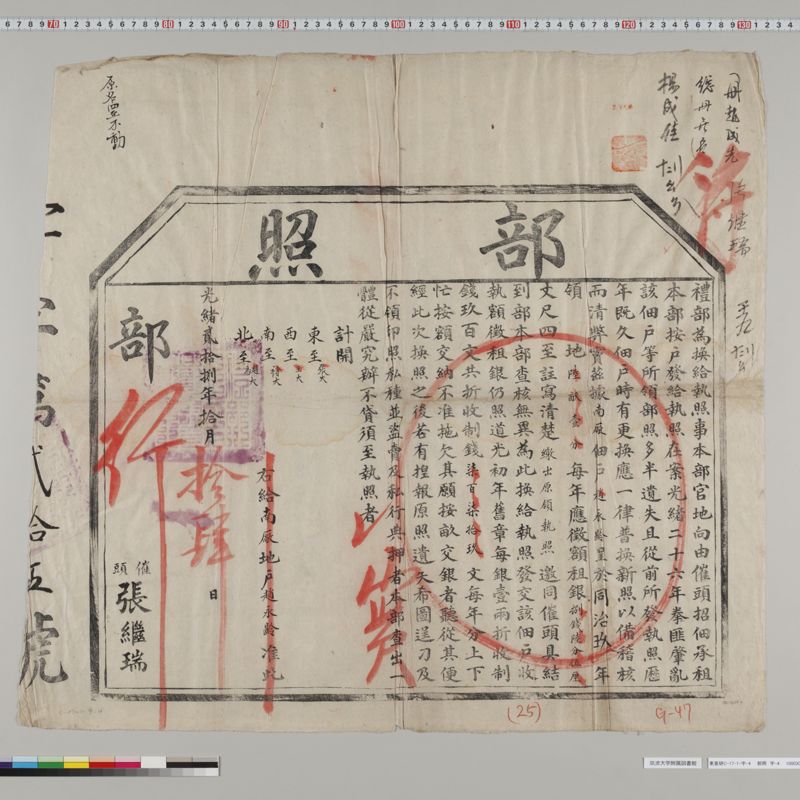 部照
禮部為換給執照事本部官地向由催頭招佃承租
本部按戶發給執照在案光緒二十六年拳匪肇亂
該佃戶等所領部照多半遺失且從前所發執照歷
年既久佃戶時有更換應一律普換新照以備稽核
而清弊竇茲據南厰佃戶趙永齡呈於同治玖年
領 地陸畝壹分 每年應徵額租銀捌錢陸分伍厘
丈尺四至註寫清楚繳出原領執照 邀同催頭具結
到部本部查核無異為此換給執照發交該佃戶收
執額徵租銀仍照道光初年舊章每銀壹兩折收制
錢玖百文共折收制錢柒百柒拾玖文每年分上下
忙按額交納不准拖欠其願按畝交銀者聽從其便
經此次換照之後若有捏報原照遺失希圖逞刁及
不領印照私種並盜賣及私行典押者本部查出一
體從嚴究辦不貸須至執照者
計開
東至張大
西至王大
南至
北至
右給南厰地戶趙永齡准此
光緒貳拾捌年拾月拾肆日
部
行
催頭張繼瑞
第弍拾五號
原名不動
楊成佳
趙成先
(25)
G-47
筑波大学附属図書館